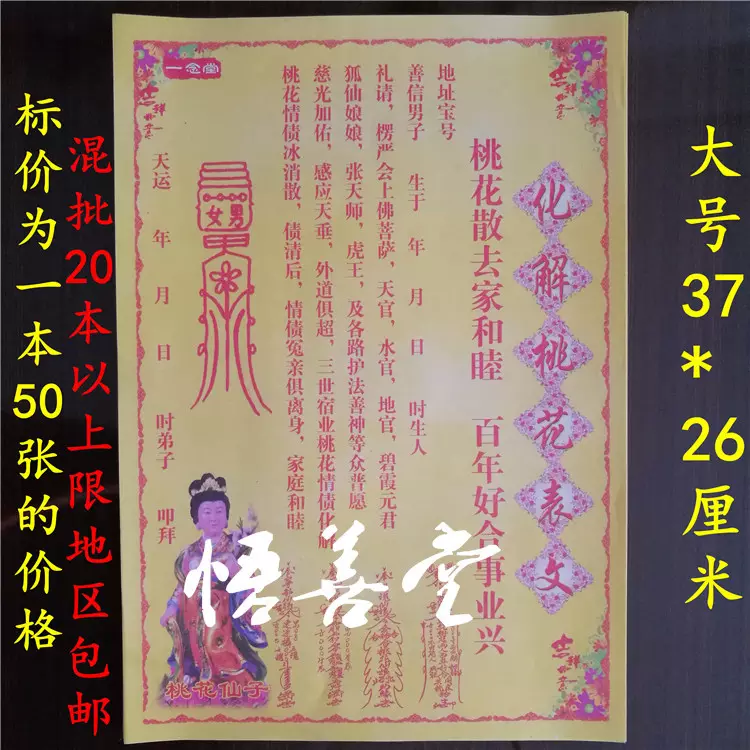 大号37*26厘米
化解桃花表文
桃花散去家和睦 百年好合事业兴
地址宝号
善信男子 生于 年 月 日 时生人
礼请，楞严会上佛菩萨，天官，水官，地官，碧霞元君
狐仙娘娘，张天师，虎王，及各路护法善神等众普愿
慈光加佑，感应天垂，外道俱超，三世宿业桃花情债化解
桃花情债冰消散，债清后，情债冤亲俱离身，家庭和睦
天运 年 月 日 时弟子 叩拜
一念堂
男女
桃花仙子
悟善堂
混批20本以上限地区包邮
标价为一本50张的价格